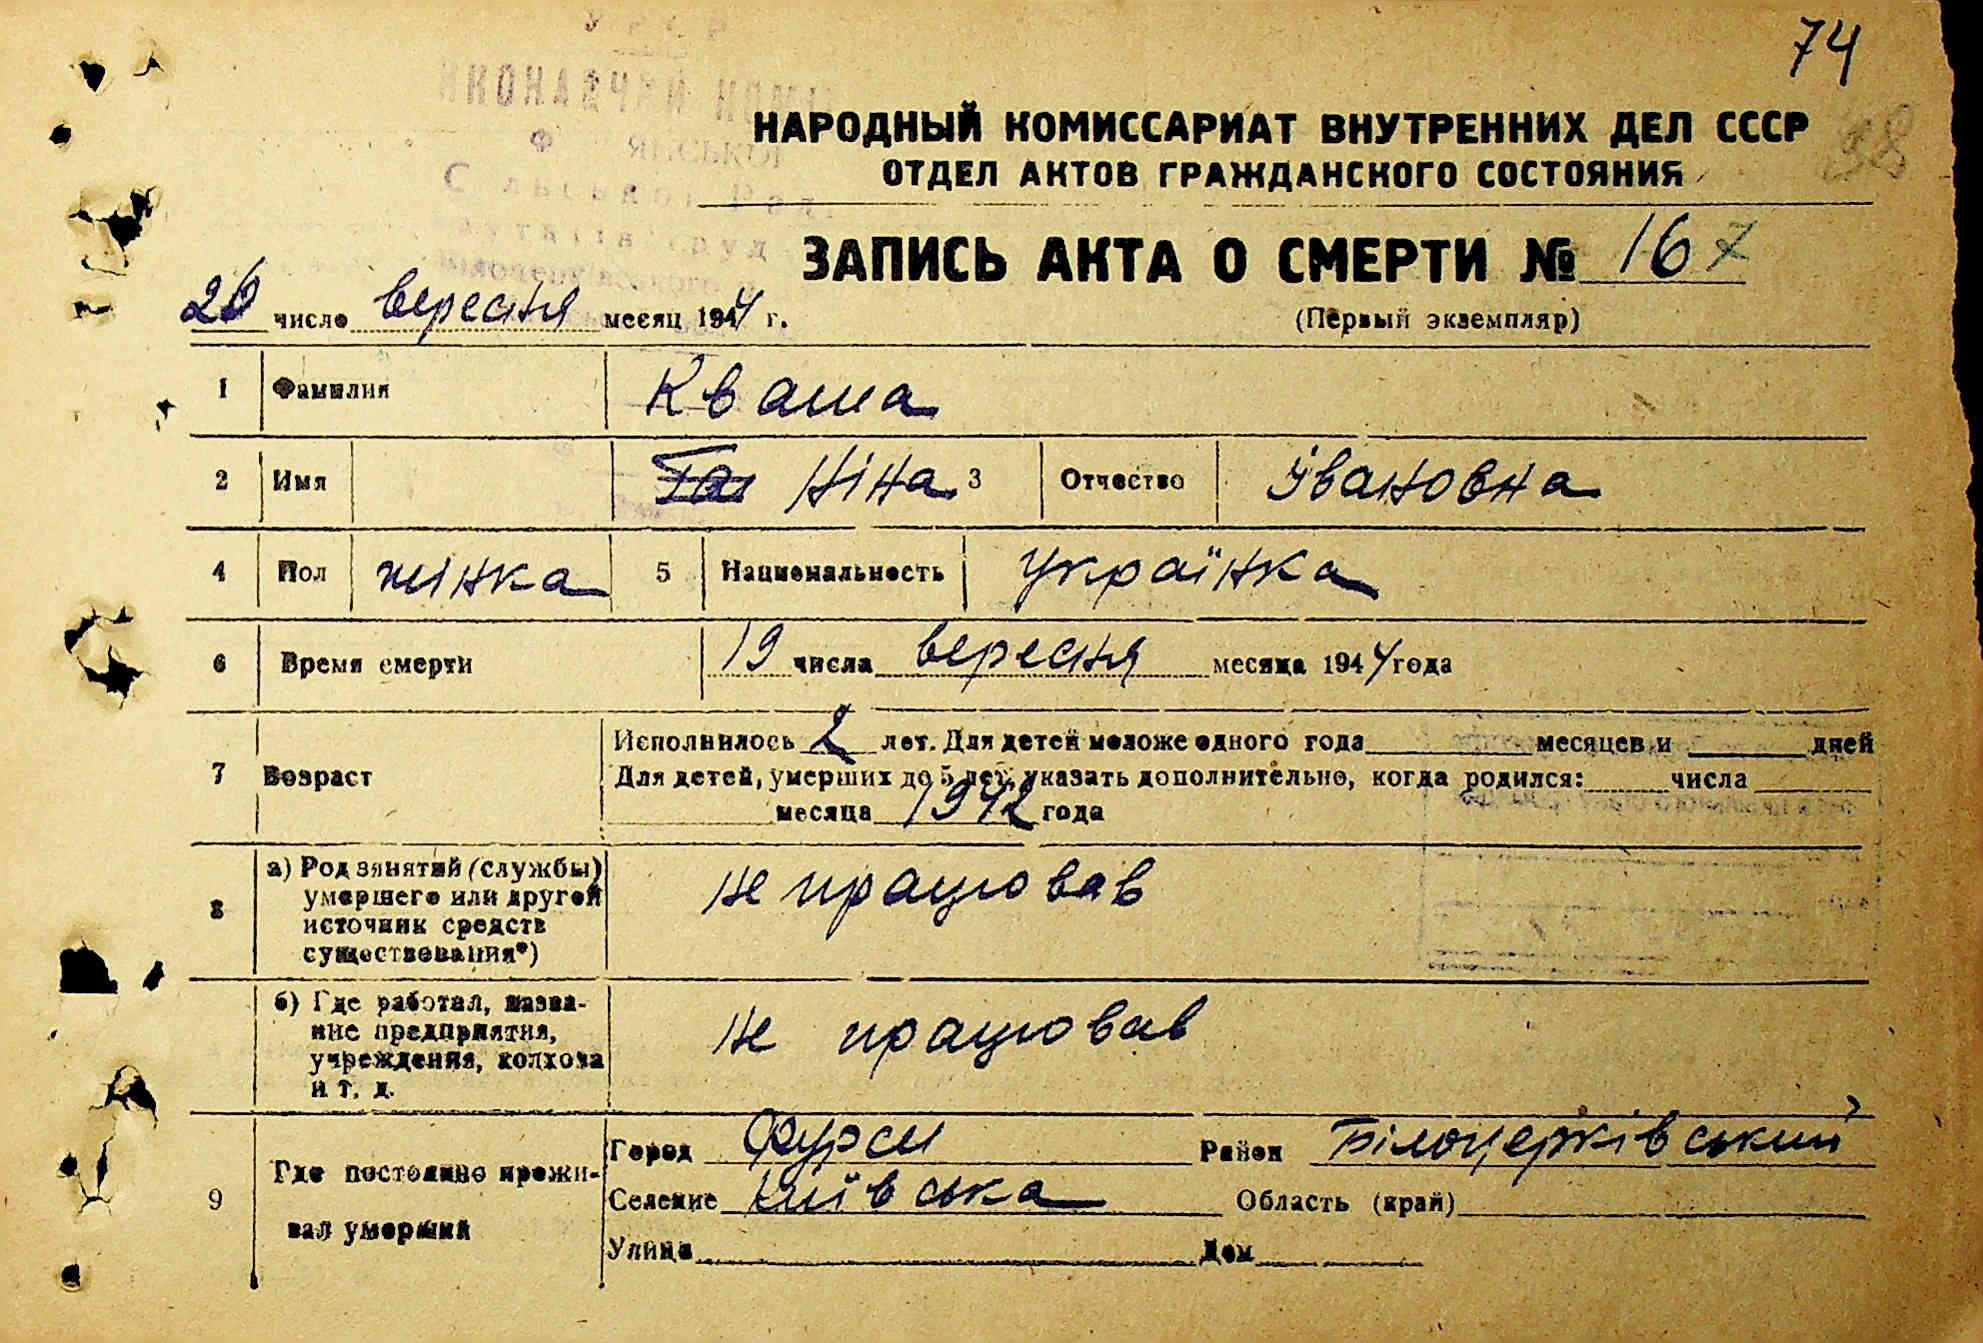 74
98
НАРОДНЫЙ КОМИССАРИАТ ВНУТРЕННИХ ДЕЛ СССР
ОТДЕЛ АКТОВ ГРАЖДАНСКОГО СОСТОЯНИЯ
ЗАПИСЬ АКТА О СМЕРТИ № 167
20 число вересня месяц 1944 г.
(Первый экземпляр)
1 Фамилия Кваша
2 Имя Ніна 3 Отчество Івановна
4 Пол жінка 5 Национальность Українка
6 Время смерти 19 числа вересня месяца 1944 года
Исполнилось 2 лет. Для детей моложе одного года месяцев и дней
7 Возраст Для детей, умерших до 5 лет, указать дополнительно, когда родился: числа
месяца 1942 года
8 а) Род занятий (службы) умершего или другой источник средств существования*) не працював
б) Где работал, название предприятия, учреждения, колхоза и т. д. не працював
9 Где постоянно проживал умерший
Город Фурси Район Білоцерківський
Селение Київська Область (край)
Улица Дом